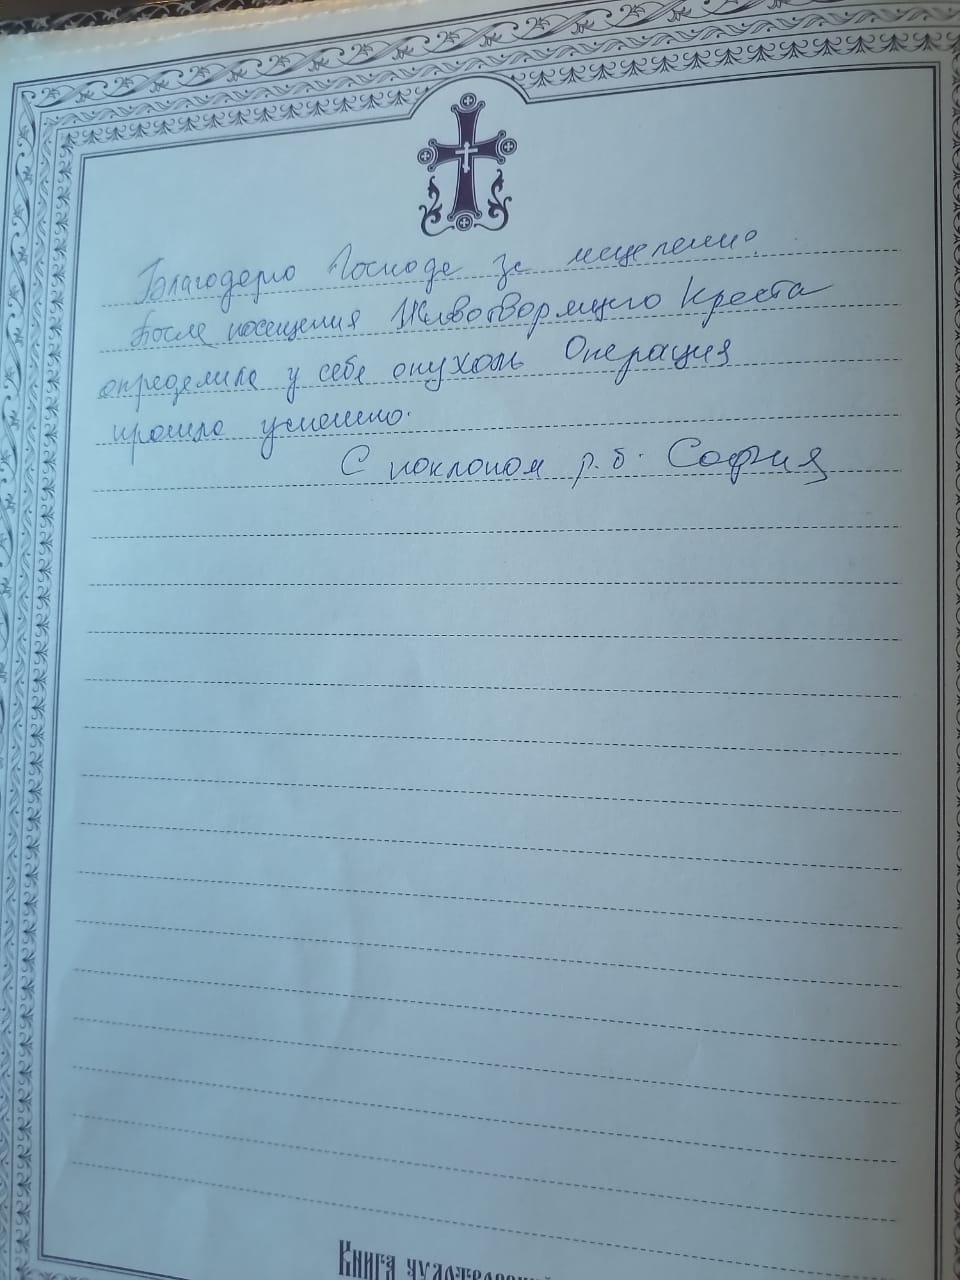 Благодарю Господа за исцеление.
После посещения Животворящего Креста
определила у себя опухоль Операция
прошла успешно.
С поклоном р. б. София
Книга